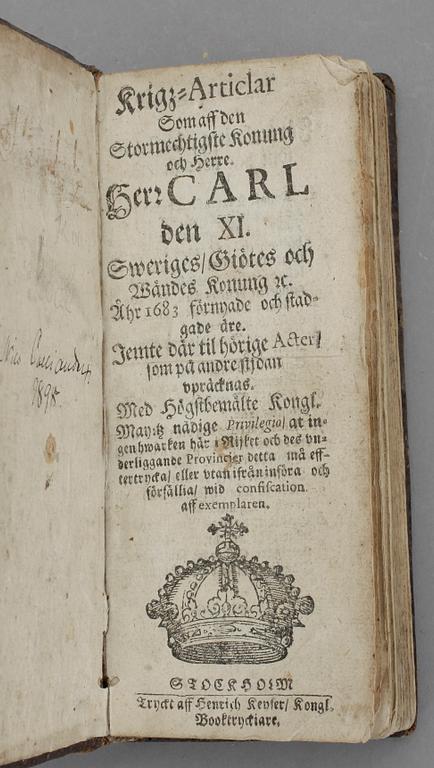 Krigz-Articlar
Som aff den
Stormechtigste Konung
och Herre.
Herr CARL
den XI.
Sweriges/ Giötes och
Wändes Konung ꝛc.
Åhr 1683 förnyade och stad-
gade äre.
Jemte där til hörige Acter/
som på andre sijdan
vpräcknas.
Med Högstbemälte Kongl.
May:tz nädige Privilegio/ at in-
gen hwarken här i Rijket och des vn-
derliggande Provincier detta må eff-
tertrycka/ eller vtan ifrån införa och
försällia/ wid confiscation
aff exemplaren.
STOCKHOLM
Tryckt aff Henrich Keyser/ Kongl.
Booktryckiare.
1895